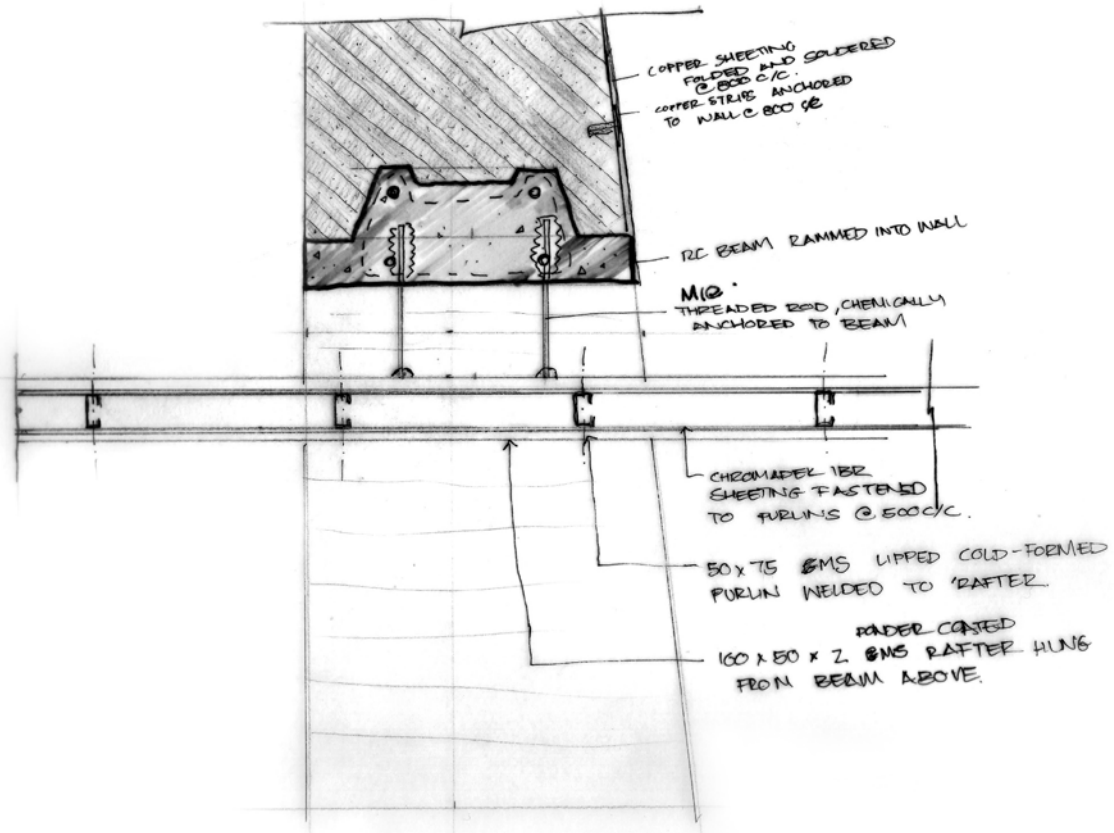 COPPER SHEETING
FOLDED AND SOLDERED
@ 800 C/C.
COPPER STRIPS ANCHORED
TO WALL @ 800 C/C
RC BEAM RAMMED INTO WALL
THREADED ROD, CHEMICALLY
ANCHORED TO BEAM
CHROMADEK IBR
SHEETING FASTENED
TO PURLINS @ 500 C/C.
50 x 75 GMS LIPPED COLD-FORMED
PURLIN WELDED TO RAFTER
POWDER COATED
x 50 x 2 RAFTER HUNG
FROM BEAM ABOVE.